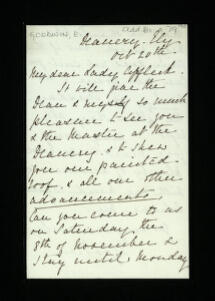 GOODWIN, E.
Deanery. Ely
Oct 20th
My dear Lady Affleck.
It will give the
Dean & myself so much
pleasure to see you
& the Master at the
Deanery, & to shew
you our painted
roof, & all our other
advancements
Can you come to us
on Saturday the
8th of November &
stay until Monday